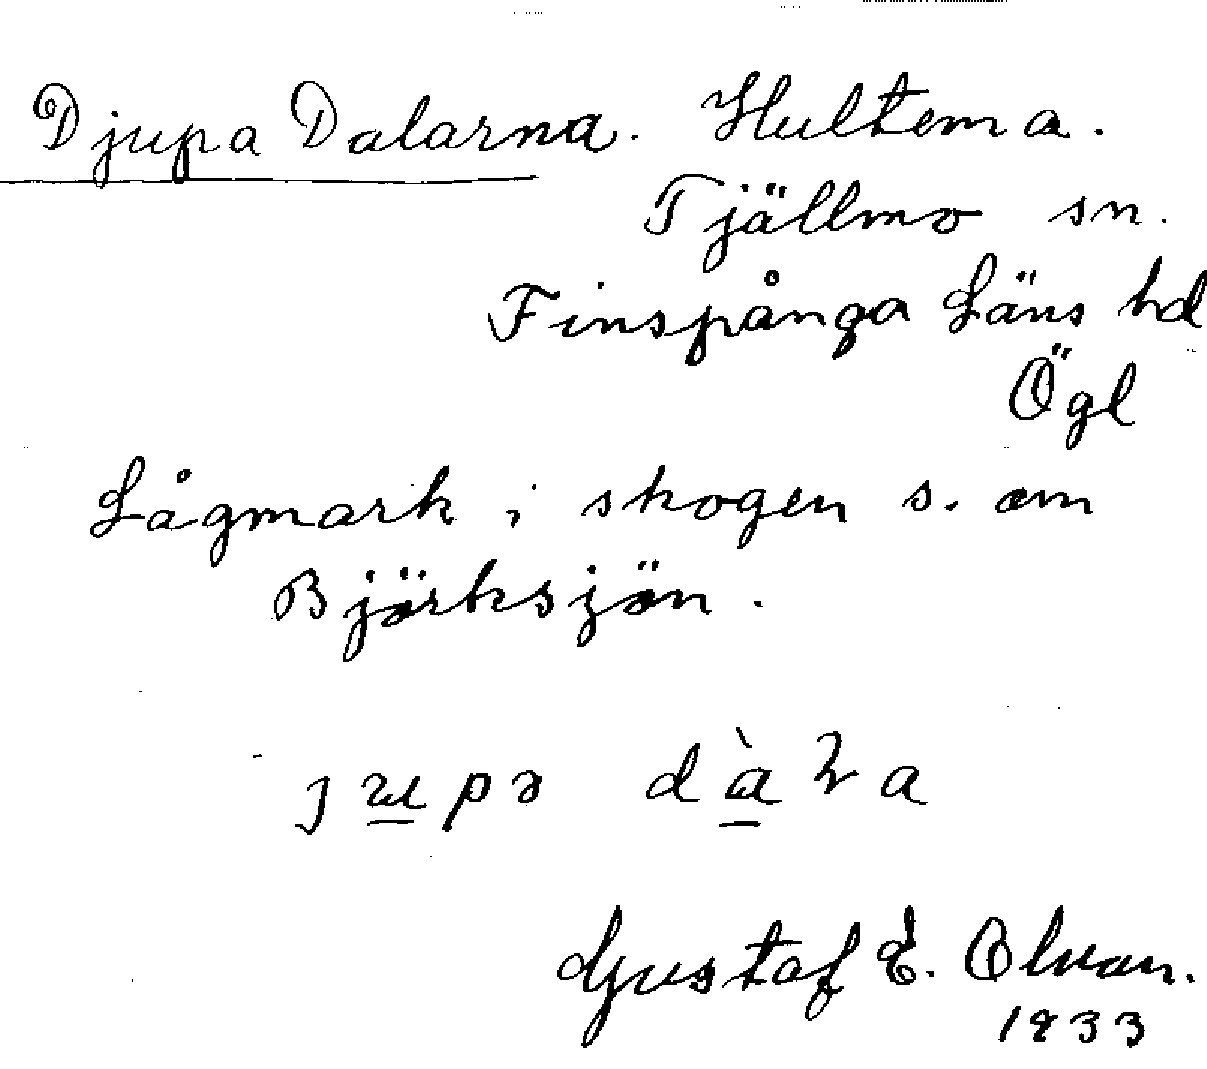 Djupa Dalarna. Hultema.
Tjällmo sn.
Finspånga Läns hd
Ögl
Lågmark i skogen s. om
Björksjön.
Gustaf E.
1933